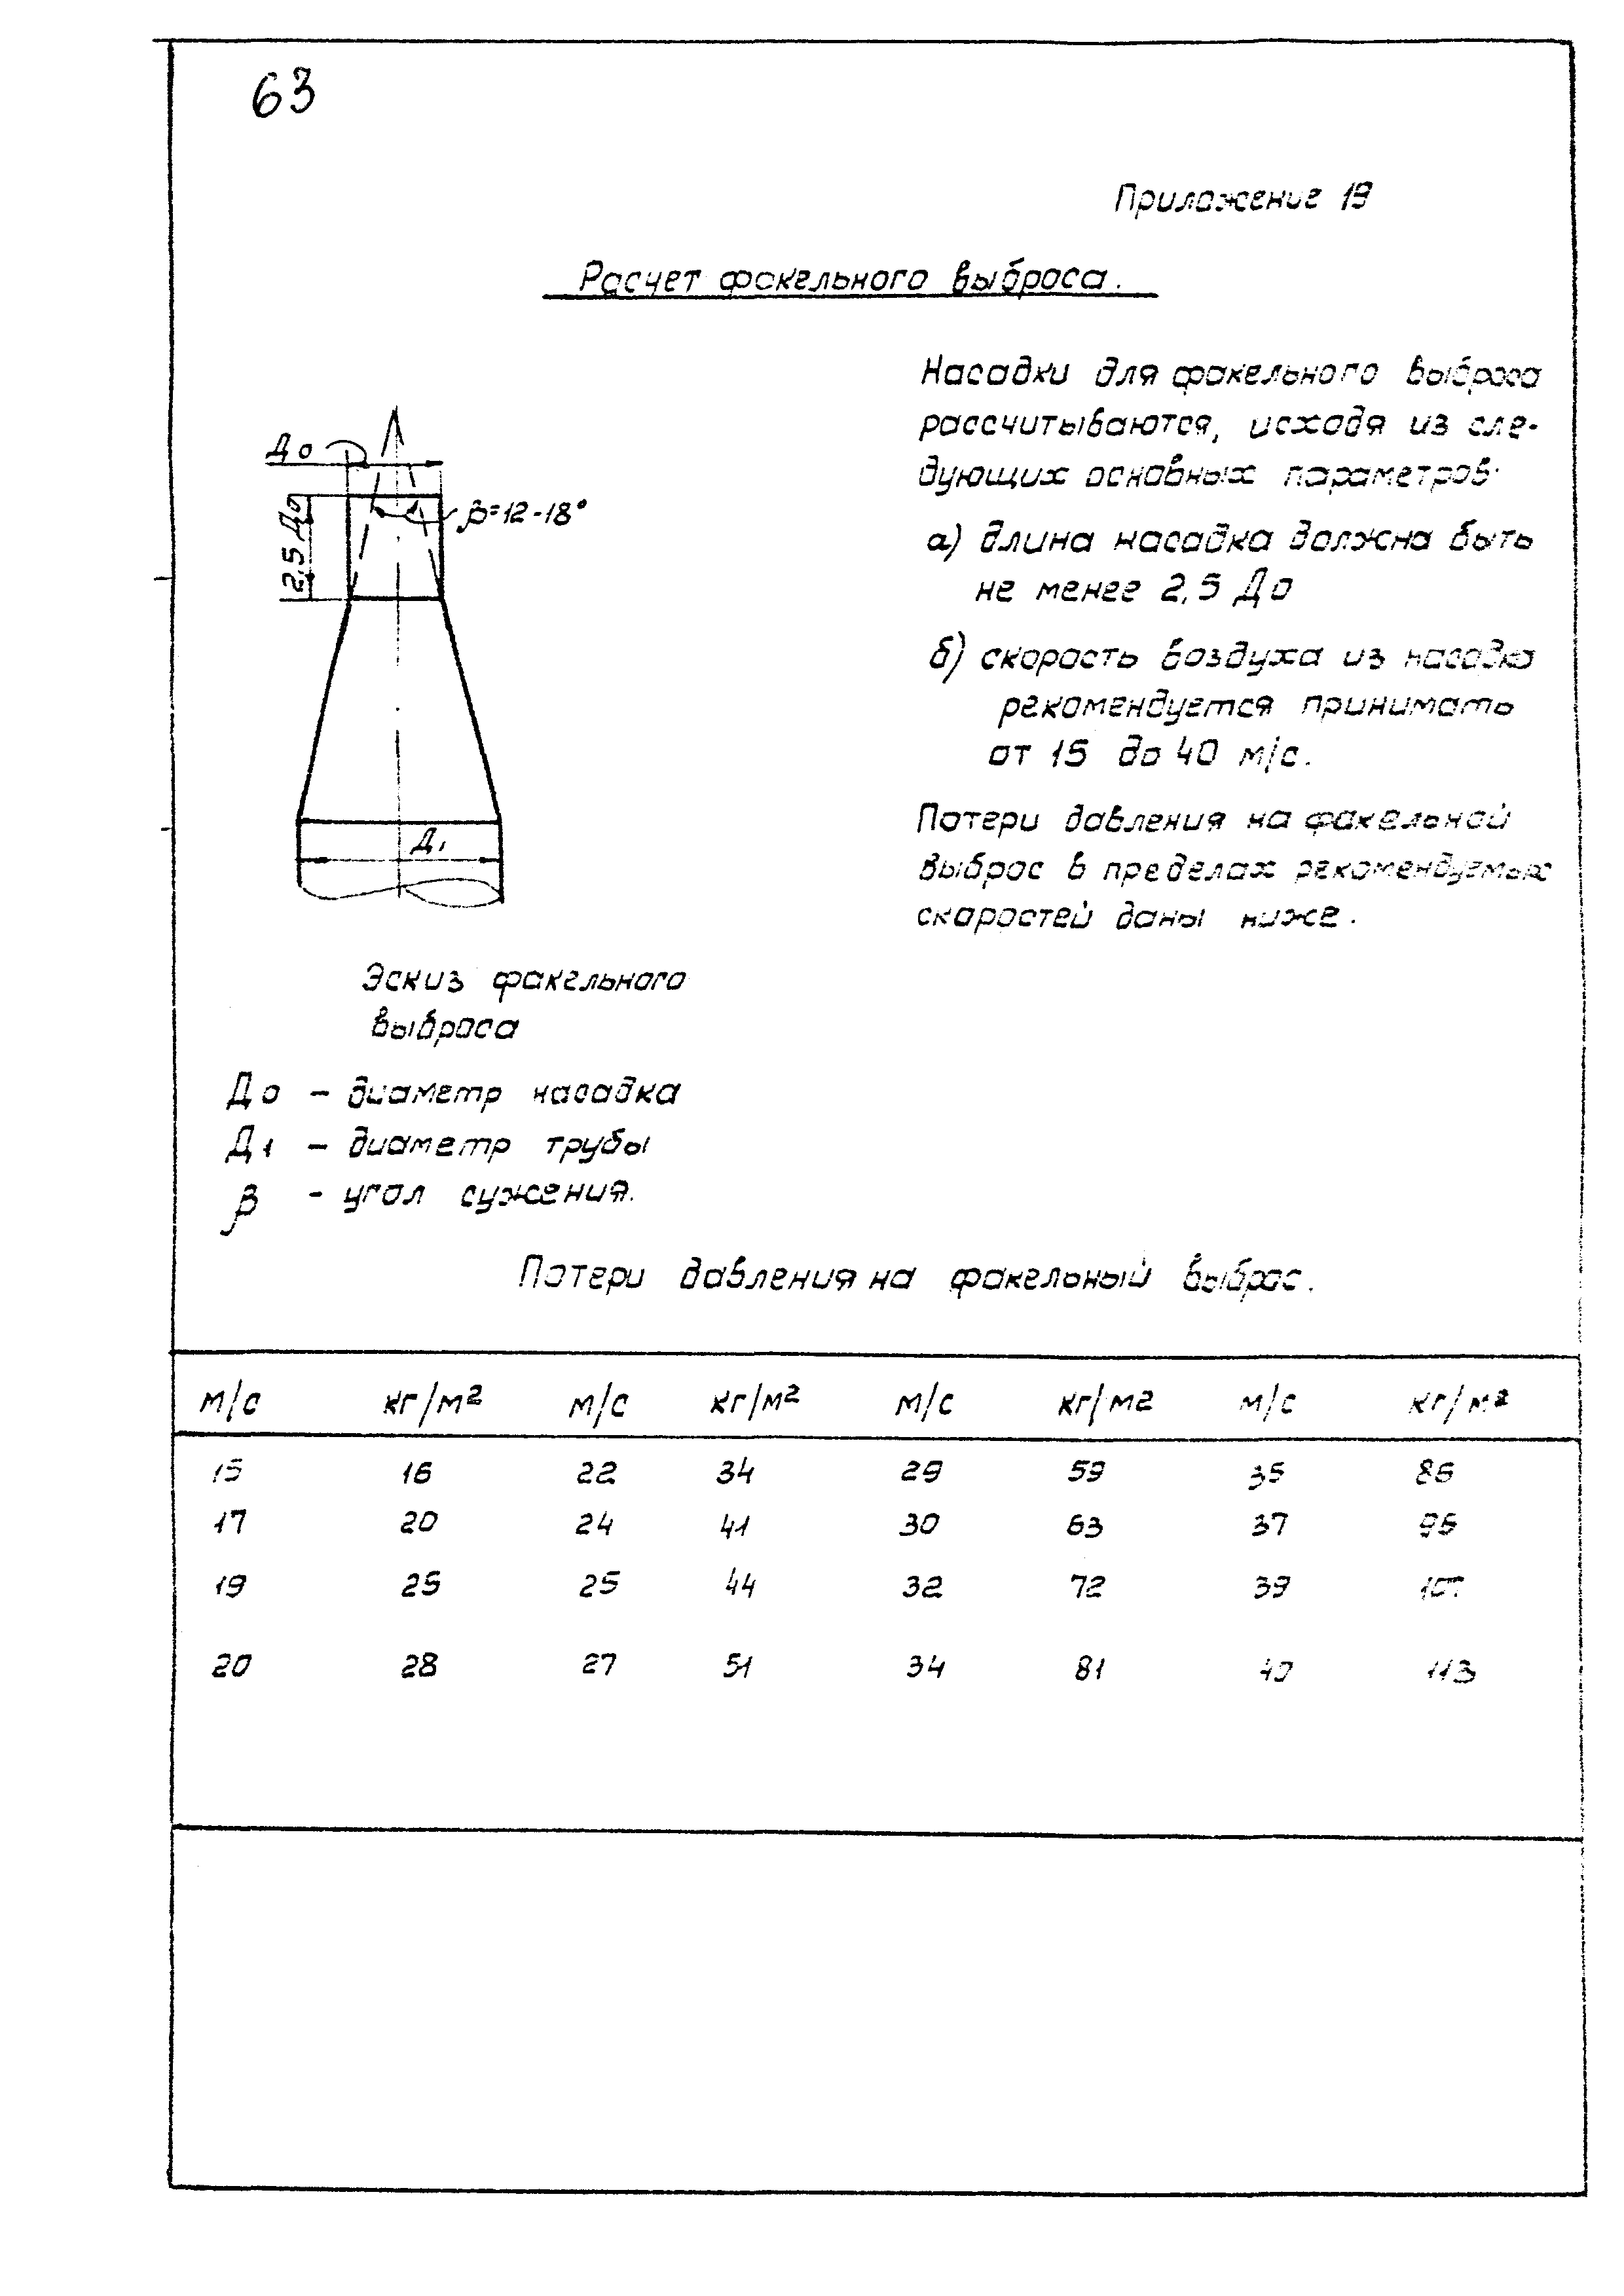 63
Приложение 19
Расчет факельного выброса.
До
2,5 До
β=12-18°
Д1
Эскиз факельного
выброса
До - диаметр насадка
Д1 - диаметр трубы
β - угол сужения.
Насадки для факельного выброса
рассчитываются, исходя из сле-
дующих основных параметров:
а) длина насадка должна быть
не менее 2,5 До
б) скорость воздуха из насадка
рекомендуется принимать
от 15 до 40 м/с.
Потери давления на факельной
выброс в пределах рекомендуемых
скоростей даны ниже.
Потери давления на факельный выброс.
м/с кг/м² м/с кг/м² м/с кг/м² м/с кг/м²
15 16 22 34 29 59 35 86
17 20 24 41 30 63 37 96
19 25 25 44 32 72 39 107
20 28 27 51 34 81 40 113